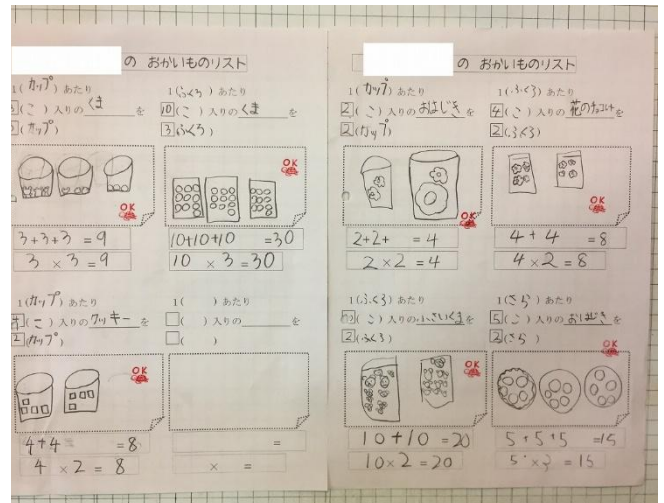 の おかいものリスト
1(カップ)あたり
(こ)入りのくまを
(カップ)
OK
3+3+3=9
3×3=9
1(ふくろ)あたり
10(こ)入りのくまを
3(ふくろ)
OK
10+10+10=30
10×3=30
1(カップ)あたり
4(こ)入りのクッキーを
2(カップ)
OK
4+4=8
4×2=8
1( )あたり
( )入りの を
( )
=
× =
の おかいものリスト
1(カップ)あたり
2(こ)入りのおはじきを
2(カップ)
OK
2+2+ =4
2×2=4
1(ふくろ)あたり
4(こ)入りの花のチョコレートを
2(ふくろ)
OK
4+4=8
4×2=8
1(ふくろ)あたり
(こ)入りの小さいくまを
2(ふくろ)
OK
10+10=20
10×2=20
1(さら)あたり
5(こ)入りのおはじきを
2(さら)
OK
5+5+5=15
5×3=15